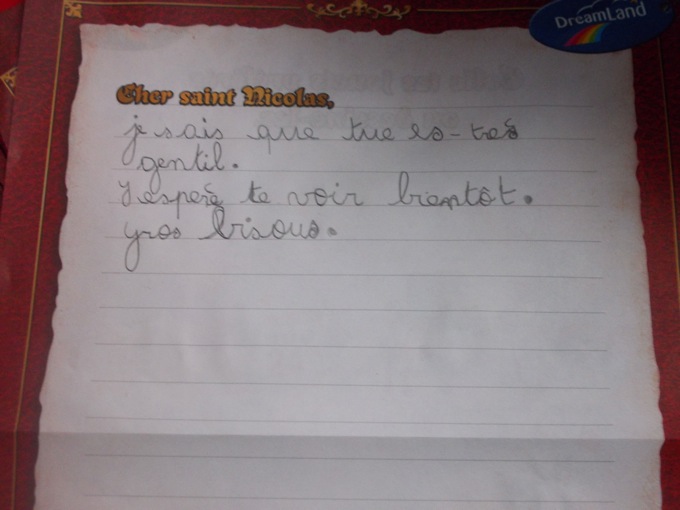 DREAMLAND
Cher saint Nicolas,
je sais que tue es-tres
gentil.
J'esperè te voir bientôt.
gros bisous.